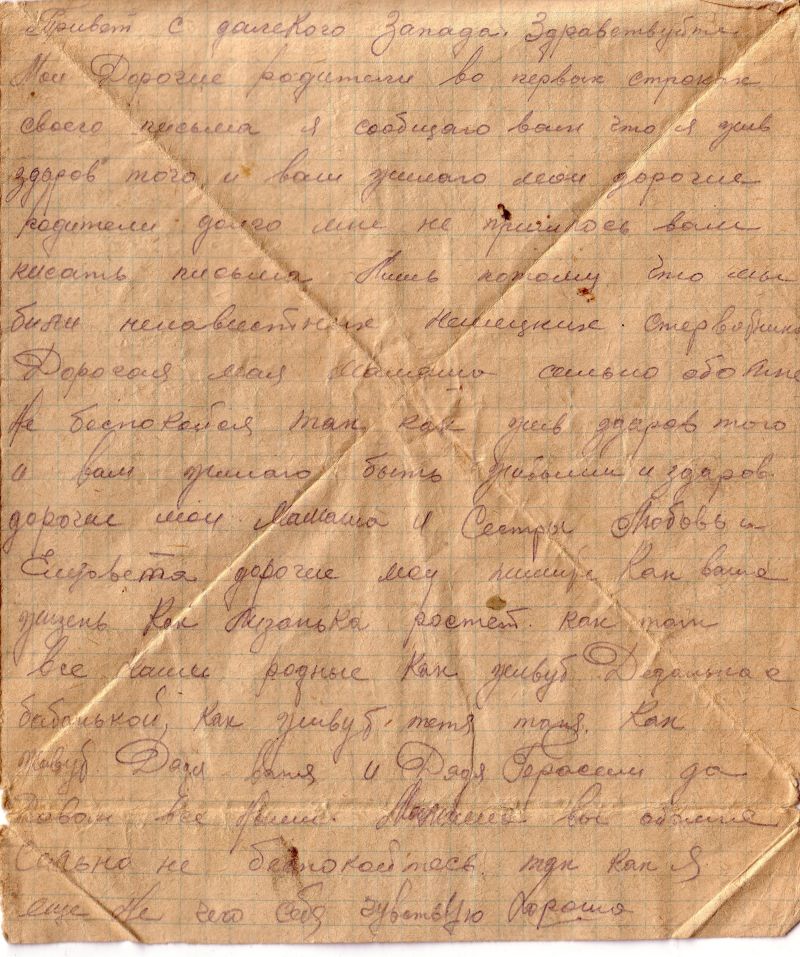 Привет с далекого Запада. Здравствуйте
Мои Дорогие родители во первых строках
своего письма я сообщаю вам что я жив
здаров того и вам жилаю мои дорогие
родители долго мне не пришлось вам
писать письма Лишь потому что мы
били ненавистных Немецких. стервотнико
Дорогая мая Мамаша сильно обо мне
Не беспокойся так как жив здаров того
и вам жилаю быть живыми и здаров
дорогие мои Мамаша и Сестры Любовь и
Елизовета дорогие мои пишите Как ваша
жизень Как Лизонька ростет. как там
все наши родные Как живут Дедонька с
бабонькой, Как живут тетя таня. Как
живут. Дядя ваня и Дядя Герасим да
все Мамаша вы обомне
Сильно не беспокойтесь. так как Я
еще Не чего Себя чувствую Хорошо